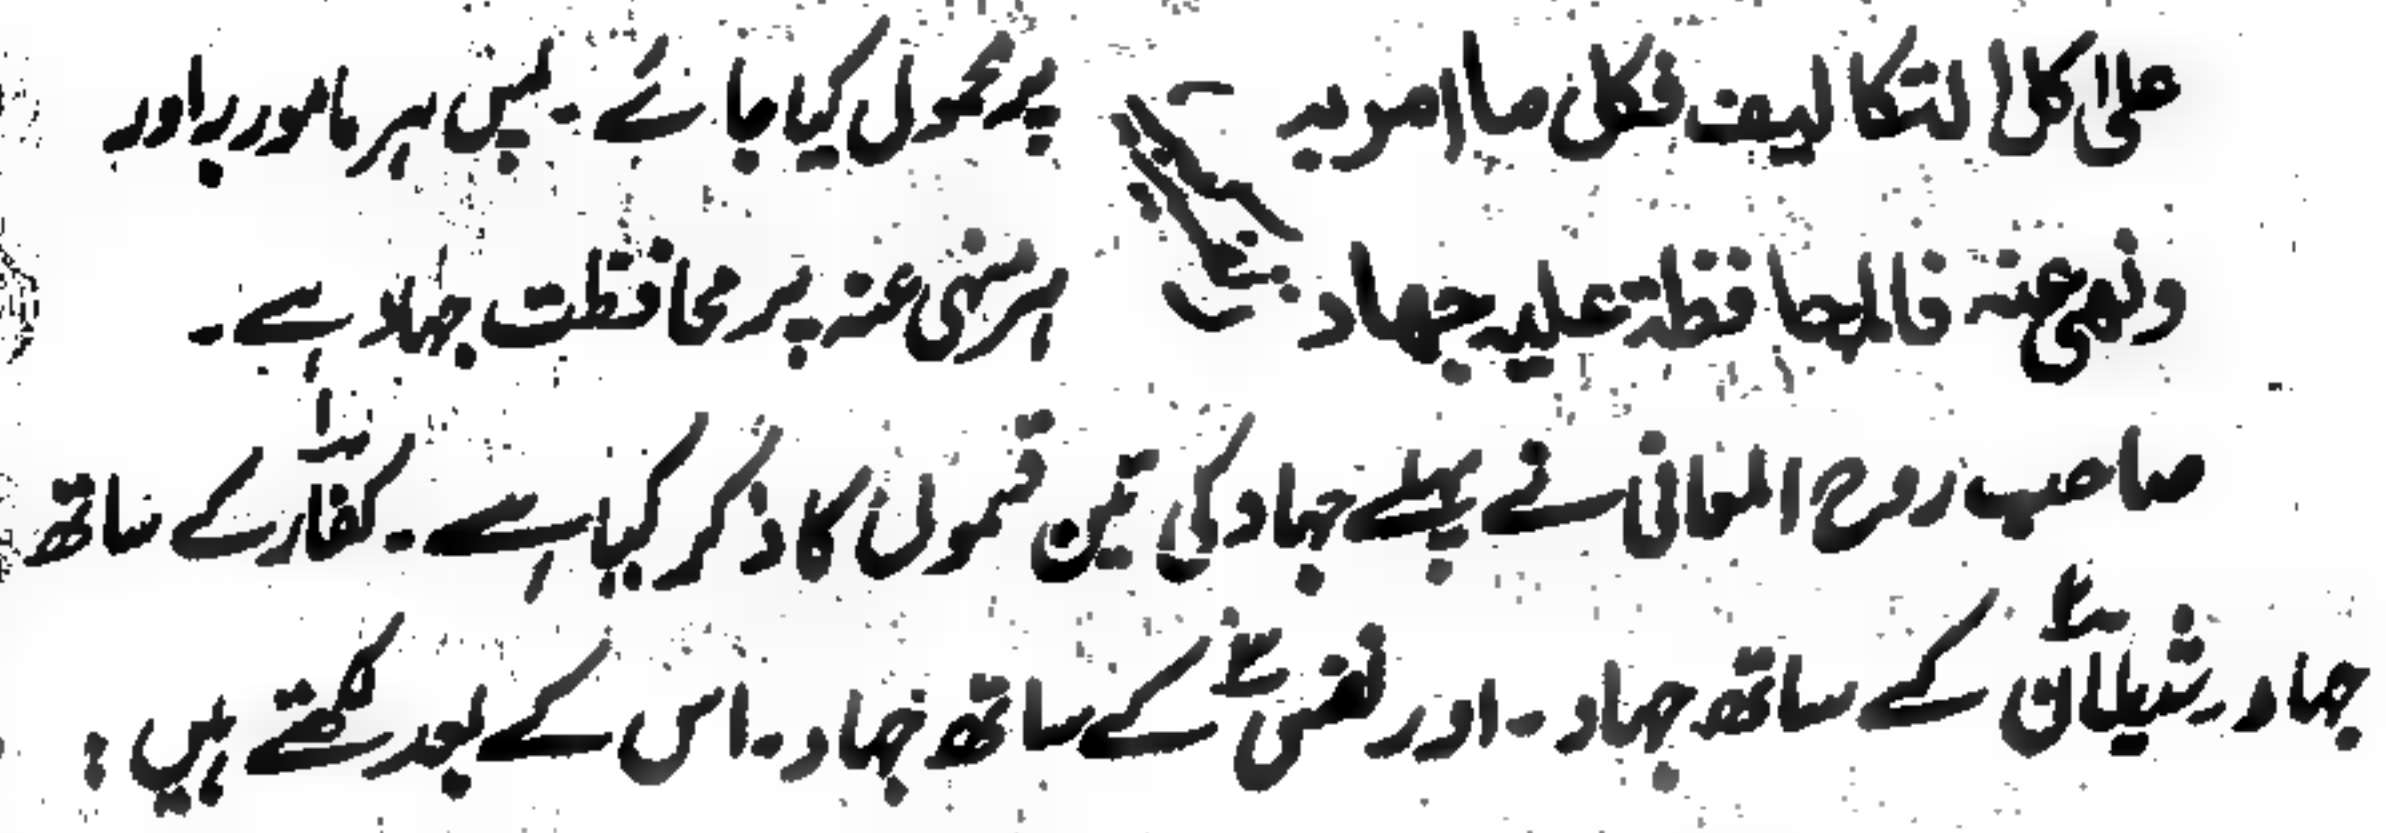 علی كل التكاليف فكل ما امر به
ونهی عنه فالمحافظة عليه جهاد
پر محمول کیا جائے ۔ پس ہر مامور بہ اور
ہر منہی عنہ پر محافظت جہاد ہے ۔
صاحب روح المعانی نے پہلے جہاد کی تین قسموں کا ذکر کیا ہے ۔ کفار۱ کے ساتھ
جہاد ۔ شیطان۲ کے ساتھ جہاد ۔ اور نفس۳ کے ساتھ جہاد ۔ اس کے بعد لکھتے ہیں :